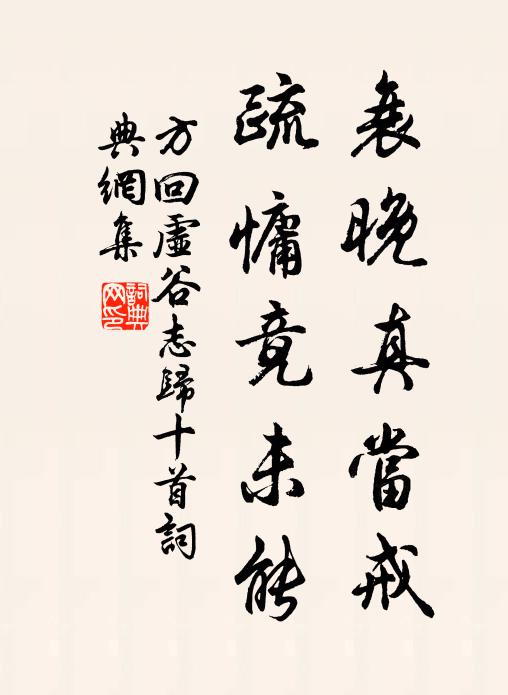 衰晚真當戒
疏慵竟未能
方回虛谷志歸十首詞
典網集
詞典網印